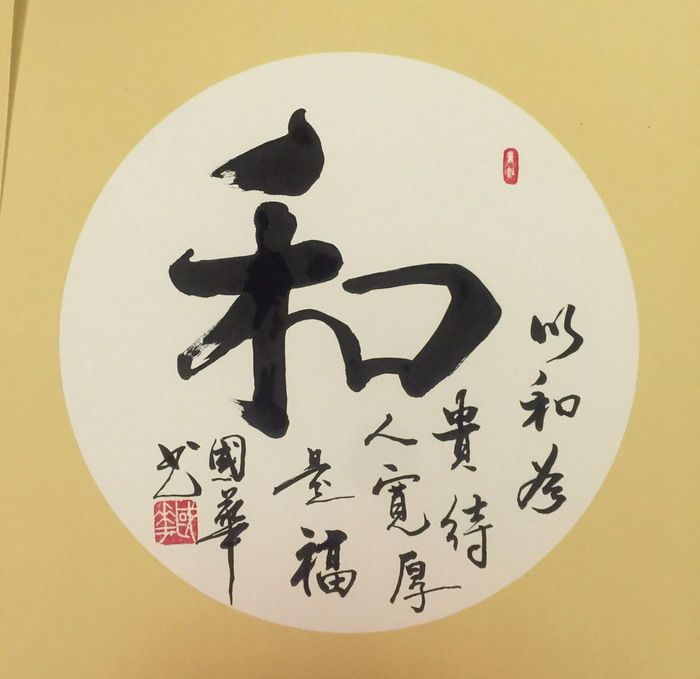 和
以和為
貴待
人寬厚
是福
國華
书
國華